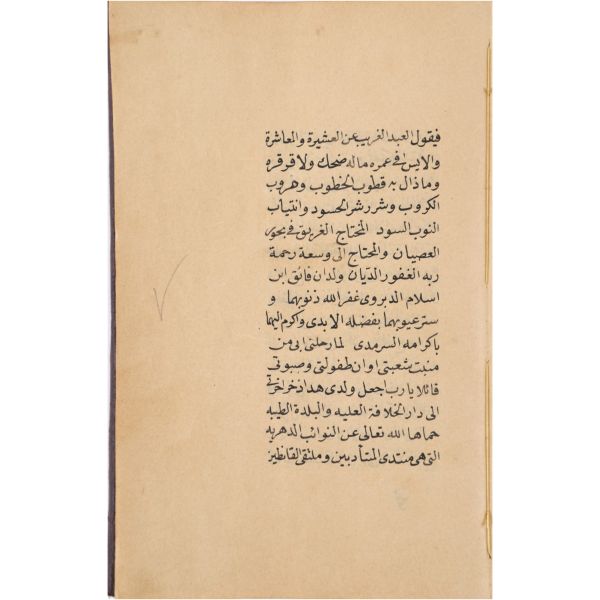 فيقول العبد الغريب عن العشيرة والمعاشرة
والايس في عمره ماله ضحك ولا قرقره
وماذال به قطوب الخطوب وهروب
الكروب وشررشر الحسود وانتياب
النوب السود المحتاج الغريق في بحور
العصيان والمحتاج الى وسعة رحمة
ربه الغفور الديان ولدان فائق ابن
اسلام الدبروى غفر الله ذنوبهما و
ستر عيوبهما بفضله الابدى واكرم اليهما
باكرامه السرمدى لما رحلنى ابى من
منبت شعبتى اوان طفولتى وصبوتى
قائلا يا رب اجعل ولدى هذا ذخر اخرتى
الى دار الخلافة العليه والبلدة الطيبه
حماها الله تعالى عن النوائب الدهريه
التى هى منتدى المتأدبين وملتقى